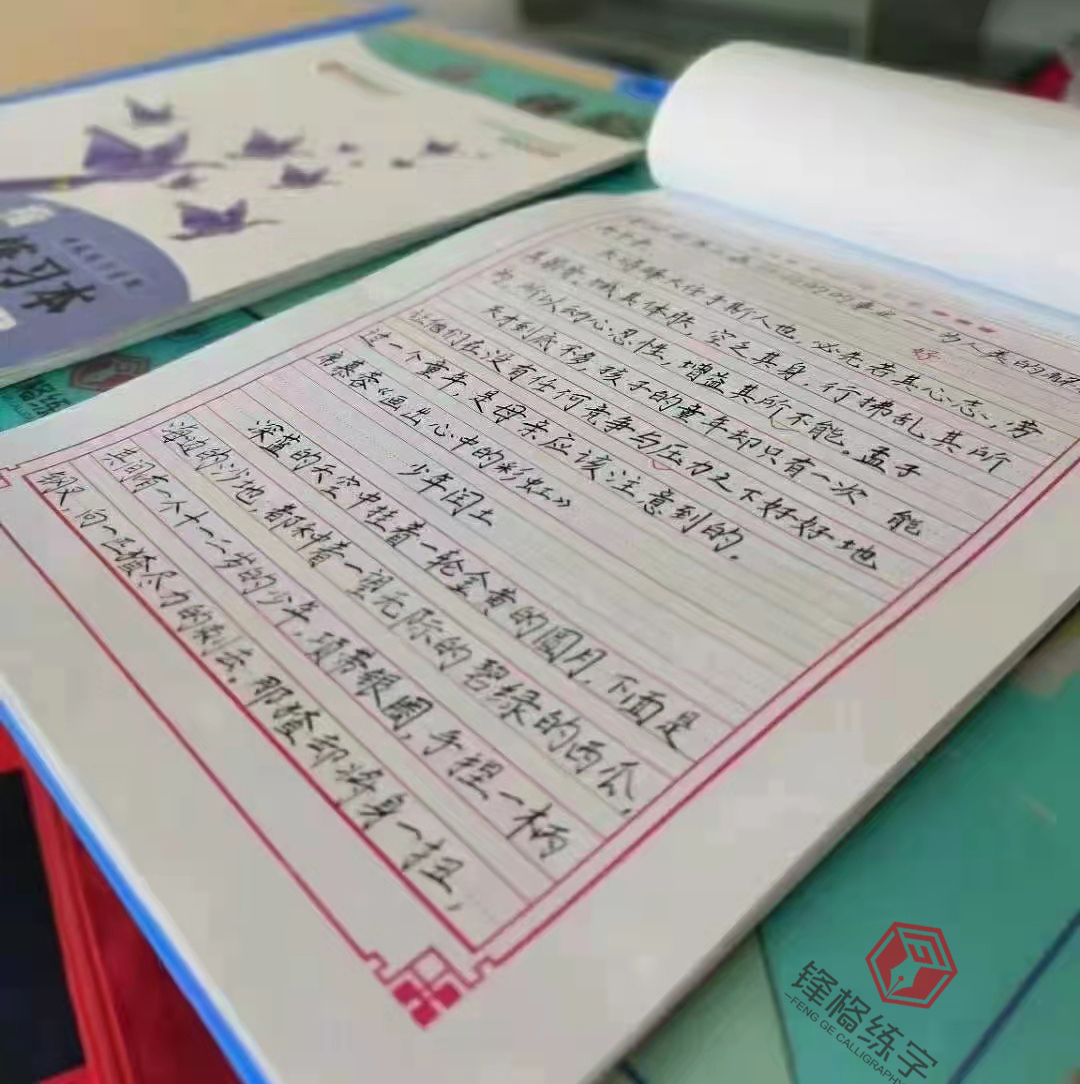 为人类的解
天将降大任于斯人也，必先苦其心志，劳
其筋骨，饿其体肤，空乏其身，行拂乱其所
为，所以动心忍性，增益其所不能。孟子
天才到底不多，孩子的童年却只有一次 能
让他们在没有任何竞争与压力之下好好地
过一个童年，是母亲应该注意到的。
席慕蓉《画出心中的彩虹》
少年闰土
深蓝的天空中挂着一轮金黄的圆月，下面是
海边的沙地，都种着一望无际的碧绿的西瓜，
其间有一个十一二岁的少年，项带银圈，手捏一柄
钢叉，向一匹猹尽力的刺去，那猹却将身一扭，
好
练习本
锋格练字
FENG GE CALLIGRAPHY